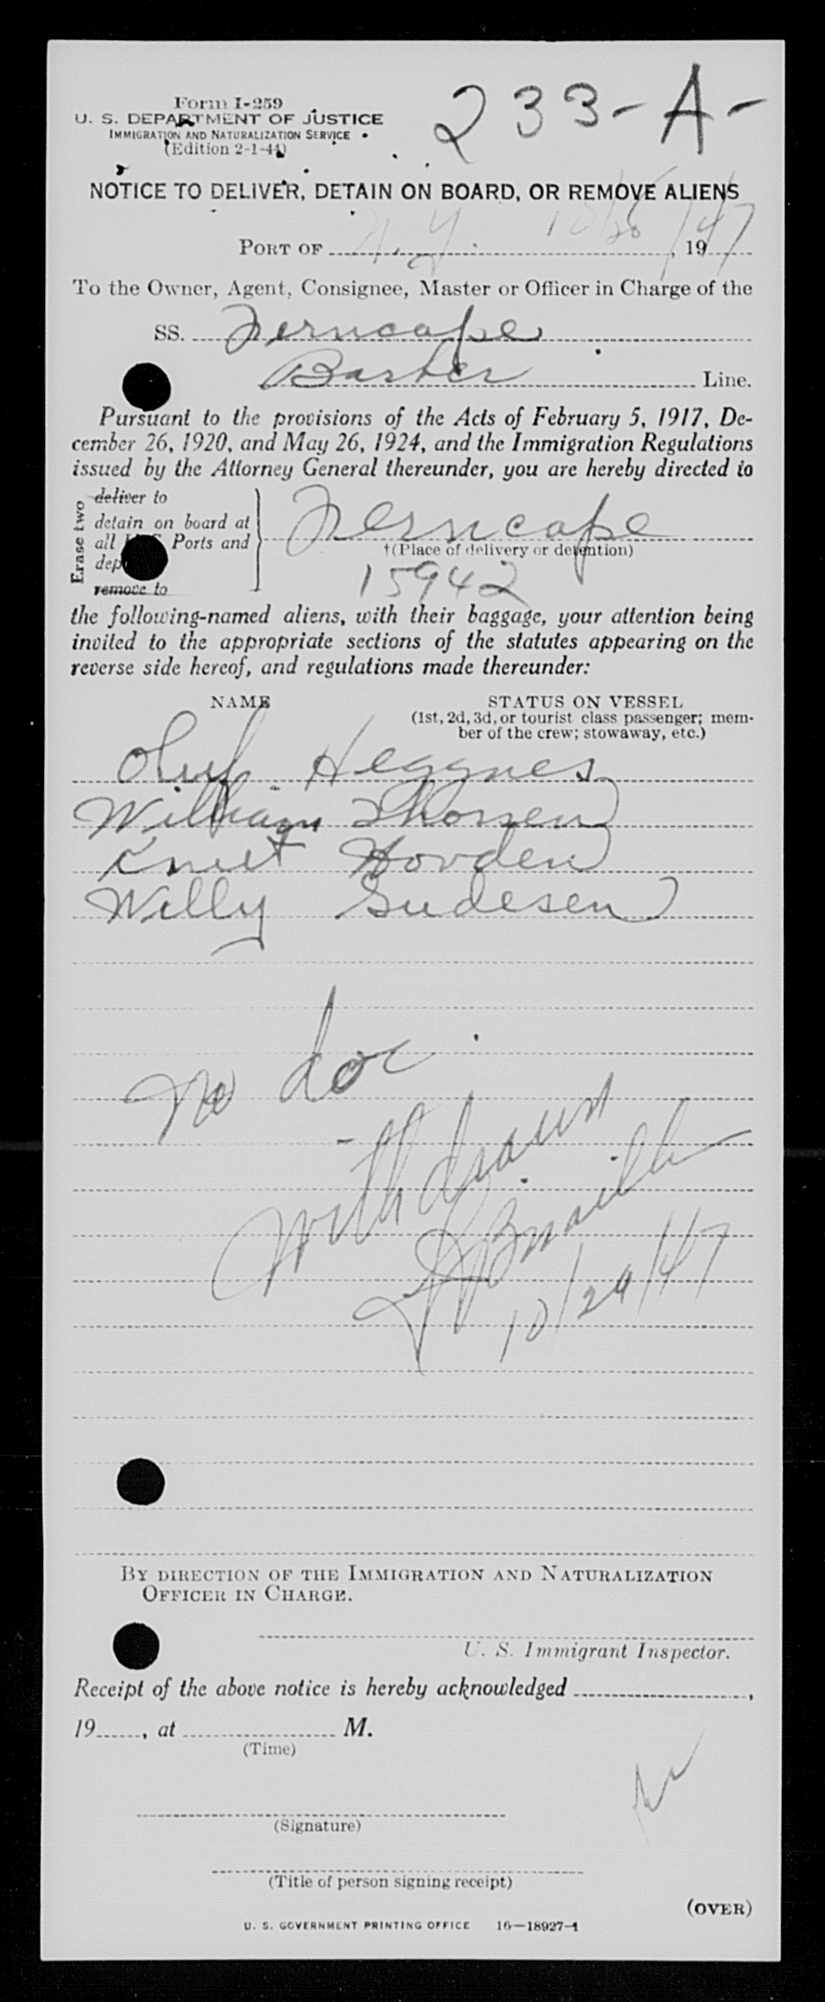 Form I-259
233-A-
U. S. DEPARTMENT OF JUSTICE
IMMIGRATION AND NATURALIZATION SERVICE
(Edition 2-1-44)
NOTICE TO DELIVER, DETAIN ON BOARD, OR REMOVE ALIENS
PORT OF N.Y. 10/28/, 1947
To the Owner, Agent, Consignee, Master or Officer in Charge of the
SS. Ferncape
Barber Line.
Pursuant to the provisions of the Acts of February 5, 1917, De-
cember 26, 1920, and May 26, 1924, and the Immigration Regulations
issued by the Attorney General thereunder, you are hereby directed to
Erase two
deliver to
detain on board at
all U.S. Ports and
dep
remove to
Ferncape
†(Place of delivery or detention)
15942
the following-named aliens, with their baggage, your attention being
invited to the appropriate sections of the statutes appearing on the
reverse side hereof, and regulations made thereunder:
NAME
STATUS ON VESSEL
(1st, 2d, 3d, or tourist class passenger; mem-
ber of the crew; stowaway, etc.)
Oluf Heggnes
William Thorsen
Knut Hovden
Willy Gudesen
No doc.
Withdrawn
10/29/47
BY DIRECTION OF THE IMMIGRATION AND NATURALIZATION
OFFICER IN CHARGE.
U. S. Immigrant Inspector.
Receipt of the above notice is hereby acknowledged ,
19 , at M.
(Time)
(Signature)
(Title of person signing receipt)
(OVER)
U. S. GOVERNMENT PRINTING OFFICE 16—18927-1